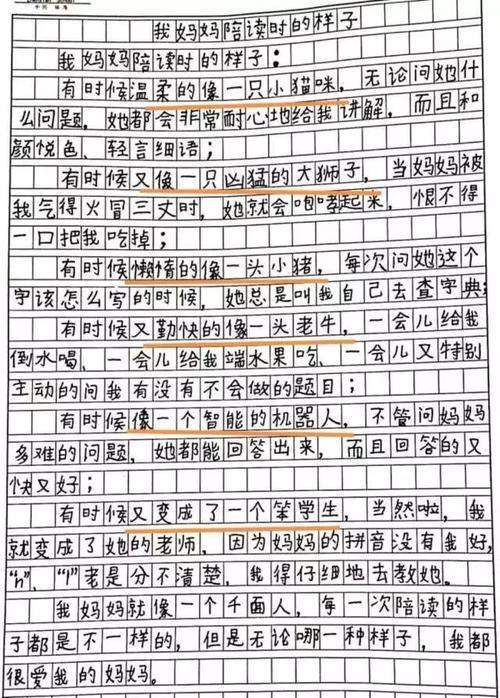 我妈妈陪读时的样子
我妈妈陪读时的样子：
有时候温柔的像一只小猫咪，无论问她什
么问题，她都会非常耐心地给我讲解，而且和
颜悦色、轻言细语；
有时候又像一只凶猛的大狮子，当妈妈被
我气得火冒三丈时，她就会咆哮起来，恨不得
一口把我吃掉；
有时候懒惰的像一头小猪，每次问她这个
字该怎么写的时候，她总是叫我自己去查字典；
有时候又勤快的像一头老牛，一会儿给我
倒水喝、一会儿给我端水果吃、一会儿又特别
主动的问我有没有不会做的题目；
有时候像一个智能的机器人，不管问妈妈
多难的问题，她都能回答出来，而且回答的又
快又好；
有时候又变成了一个笨学生，当然啦，我
就变成了她的老师，因为妈妈的拼音没有我好，
“n”、“l”老是分不清楚，我得仔细地去教她。
我妈妈就像一个千面人，每一次陪读的样
子都是不一样的，但是无论哪一种样子，我都
很爱我的妈妈。